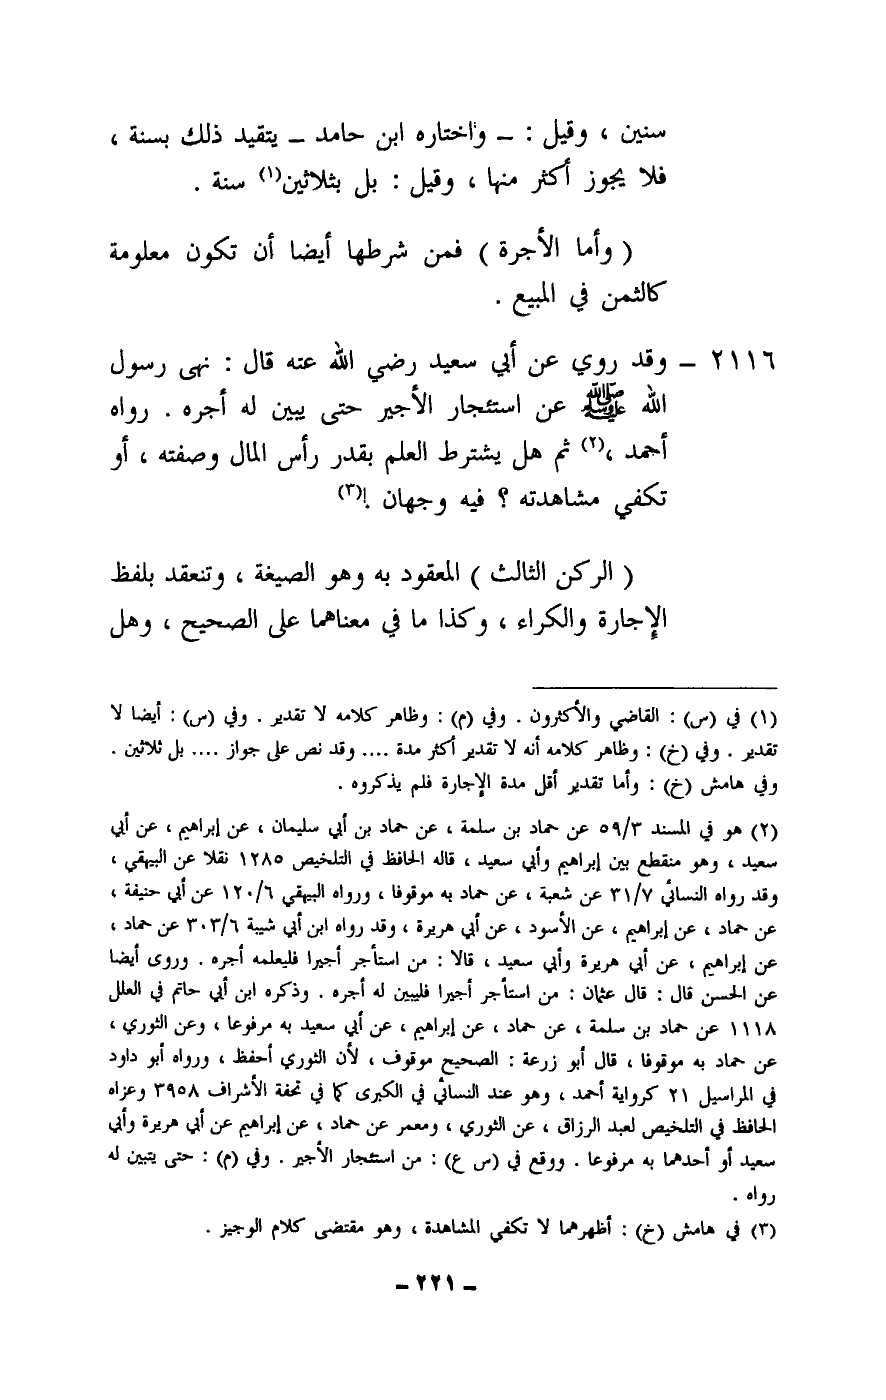 سنين ، وقيل : ــ واختاره ابن حامد ــ يتقيد ذلك بسنة ،
فلا يجوز أكثر منها ، وقيل : بل بثلاثين(١) سنة .
( وأما الأجرة ) فمن شرطها أيضا أن تكون معلومة
كالثمن في المبيع .
٢١١٦ ــ وقد روي عن أبي سعيد رضي الله عنه قال : نهى رسول
الله ﷺ عن استئجار الأجير حتى يبين له أجره . رواه
أحمد ،(٢) ثم هل يشترط العلم بقدر رأس المال وصفته ، أو
تكفي مشاهدته ؟ فيه وجهان .!(٣)
( الركن الثالث ) المعقود به وهو الصيغة ، وتنعقد بلفظ
الإجارة والكراء ، وكذا ما في معناهما على الصحيح ، وهل
(١) في (س) : القاضي والأكثرون . وفي (م) : وظاهر كلامه لا تقدير . وفي (س) : أيضا لا
تقدير . وفي (خ) : وظاهر كلامه أنه لا تقدير أكثر مدة .... وقد نص على جواز .... بل ثلاثين .
وفي هامش (خ) : وأما تقدير أقل مدة الإجارة فلم يذكروه .
(٢) هو في المسند ٥٩/٣ عن حماد بن سلمة ، عن حماد بن أبي سليمان ، عن إبراهيم ، عن أبي
سعيد ، وهو منقطع بين إبراهيم وأبي سعيد ، قاله الحافظ في التلخيص ١٢٨٥ نقلا عن البيهقي ،
وقد رواه النسائي ٣١/٧ عن شعبة ، عن حماد به موقوفا ، ورواه البيهقي ١٢٠/٦ عن أبي حنيفة ،
عن حماد ، عن إبراهيم ، عن الأسود ، عن أبي هريرة ، وقد رواه ابن أبي شيبة ٣٠٣/٦ عن حماد ،
عن إبراهيم ، عن أبي هريرة وأبي سعيد ، قالا : من استأجر أجيرا فليعلمه أجره . وروى أيضا
عن الحسن قال : قال عثمان : من استأجر أجيرا فليبين له أجره . وذكره ابن أبي حاتم في العلل
١١١٨ عن حماد بن سلمة ، عن حماد ، عن إبراهيم ، عن أبي سعيد به مرفوعا ، وعن الثوري ،
عن حماد به موقوفا ، قال أبو زرعة : الصحيح موقوف ، لأن الثوري أحفظ ، ورواه أبو داود
في المراسيل ٢١ كرواية أحمد ، وهو عند النسائي في الكبرى كما في تحفة الأشراف ٣٩٥٨ وعزاه
الحافظ في التلخيص لعبد الرزاق ، عن الثوري ، ومعمر عن حماد ، عن إبراهيم عن أبي هريرة وأبي
سعيد أو أحدهما به مرفوعا . ووقع في (س ع) : من استئجار الأجير . وفي (م) : حتى يتبين له
رواه .
(٣) في هامش (خ) : أظهرهما لا تكفي المشاهدة ، وهو مقتضى كلام الوجيز .
ــ ٢٢١ ــ